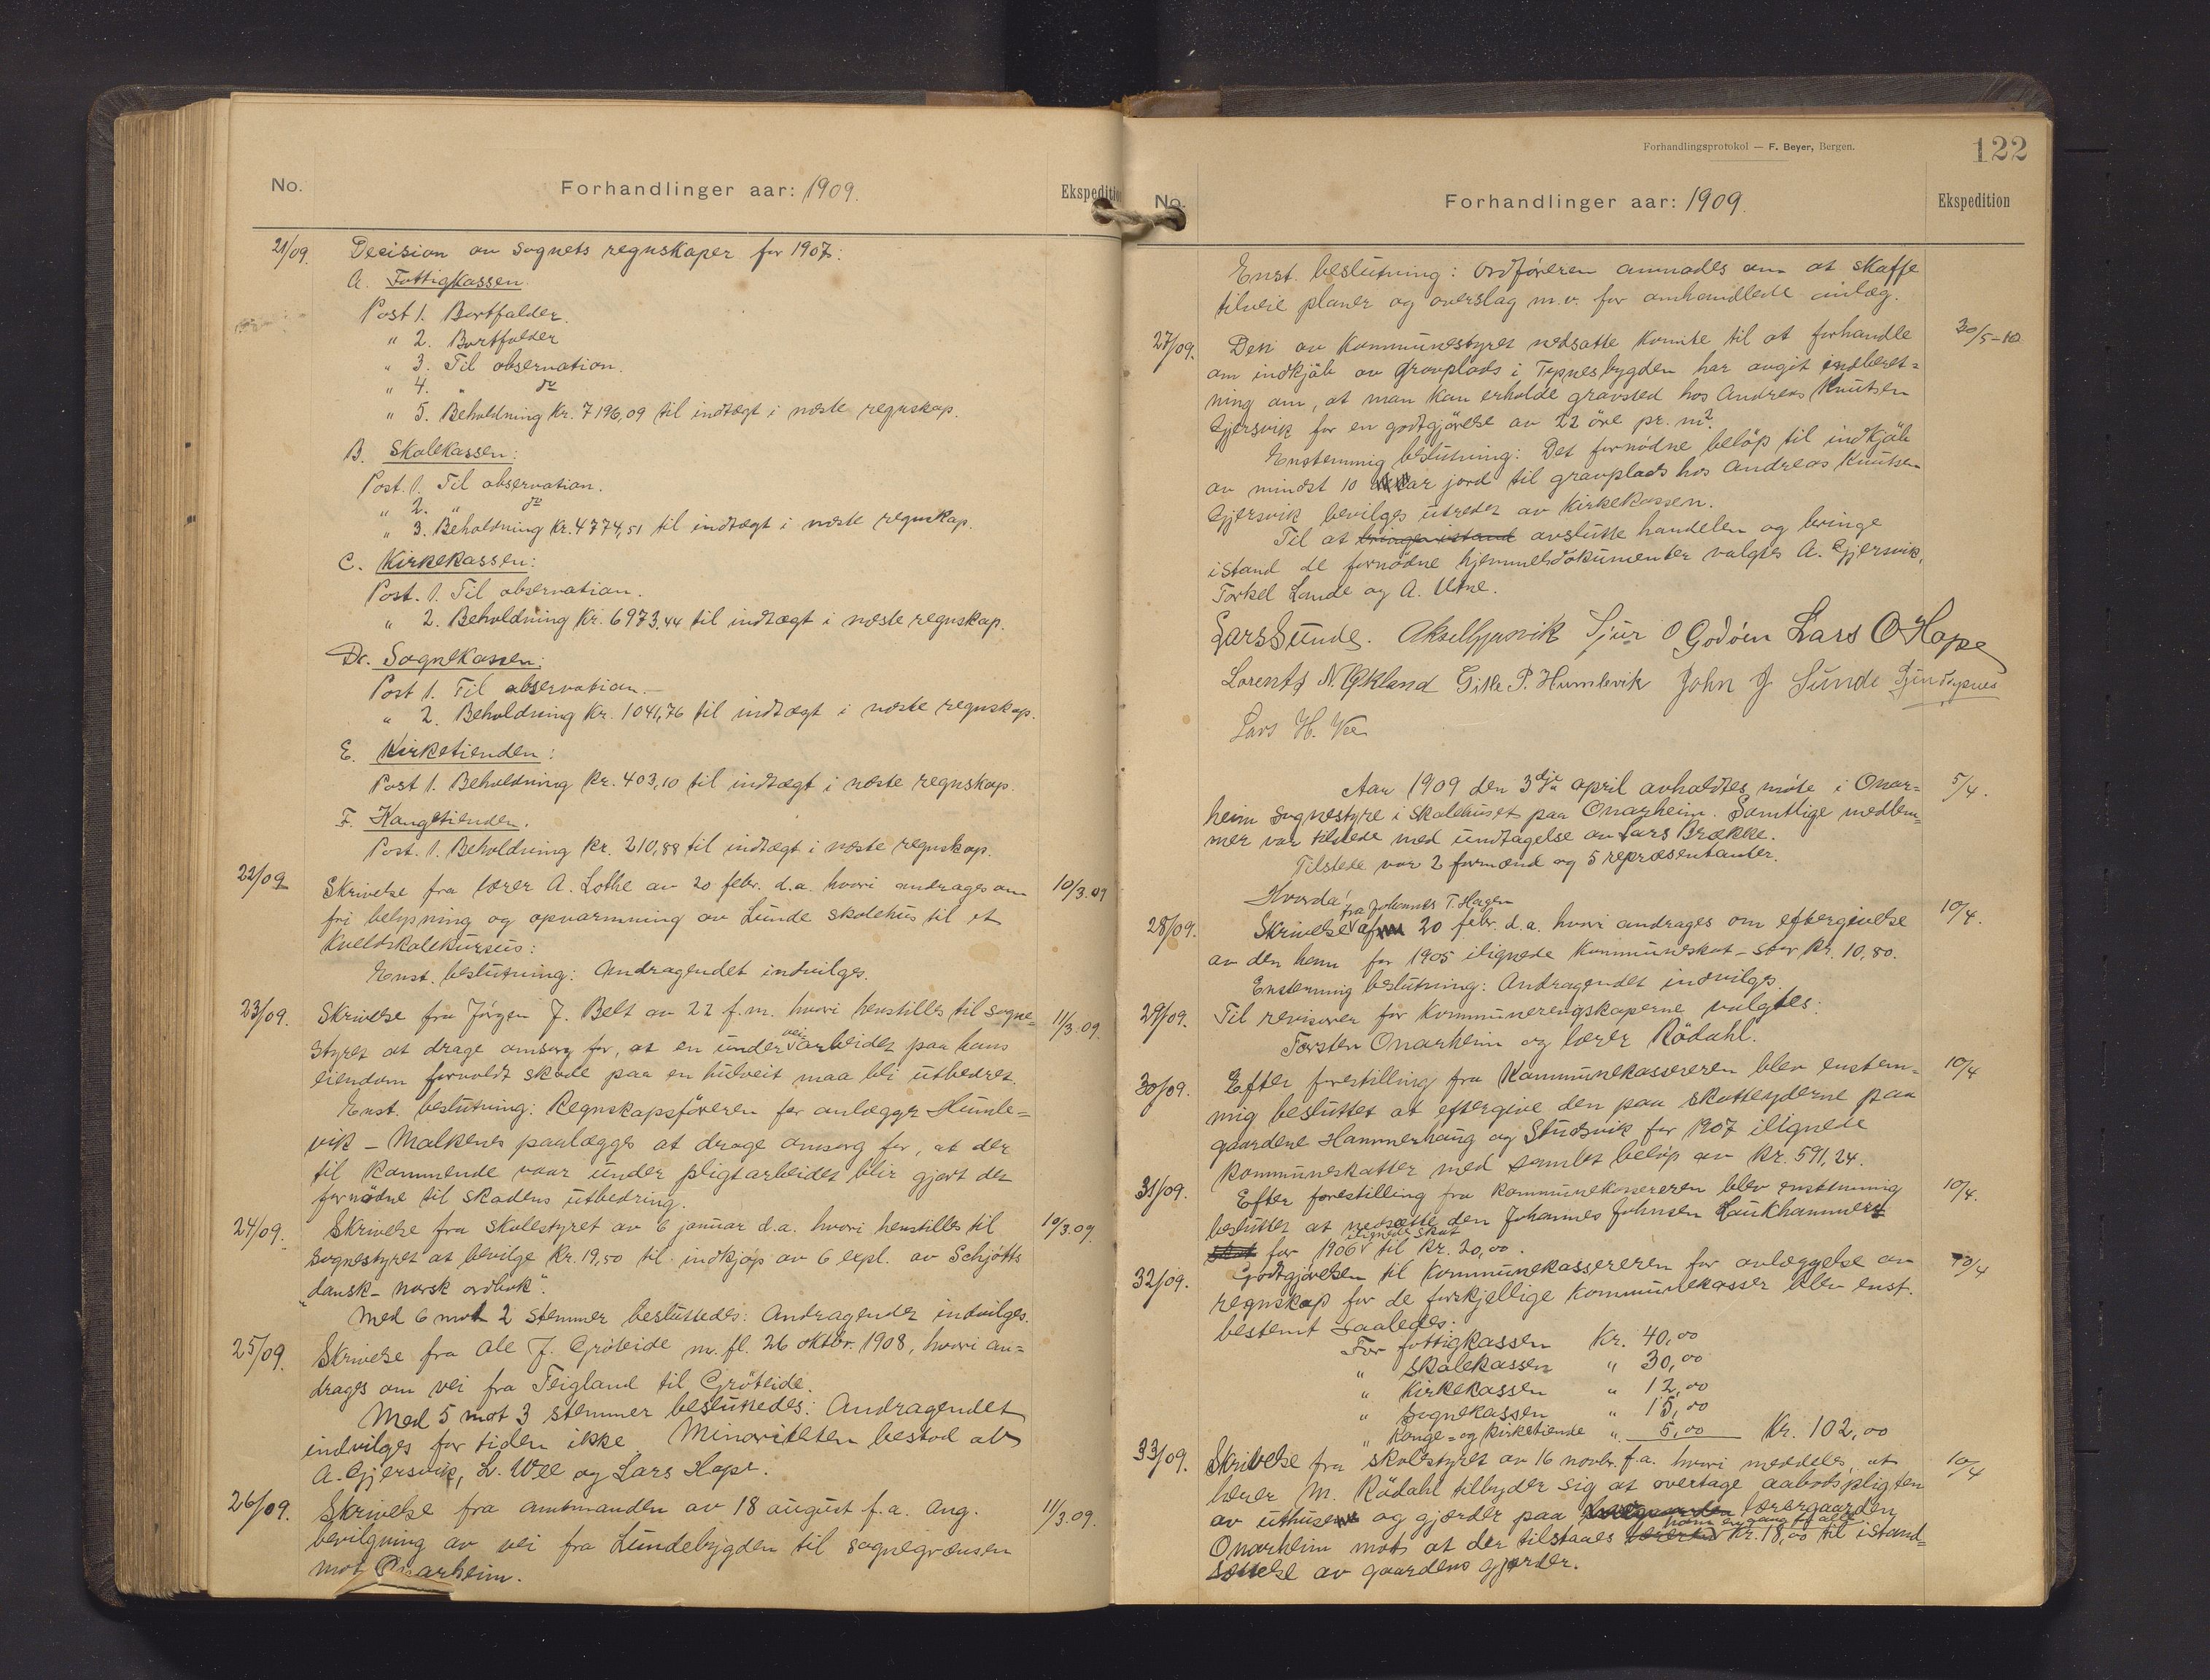 No.
Forhandlinger aar: 1909.
Ekspedition
21/09. Decision av sognets regnskaper for 1907:
A. Fattigkassen.
Post 1. Bortfalder.
" 2. Bortfalder
" 3. Til observation.
" 4. " do
" 5. Beholdning Kr. 7196,09 til indtægt i næste regnskap.
B. Skolekassen:
Post. 1. Til observation.
" 2. " do
" 3. Beholdning Kr. 4774,51 til indtægt i næste regnskap.
C. Kirkekassen:
Post. 1. Til observation.
" 2. Beholdning Kr. 6973,44 til indtægt i næste regnskap.
D. Sognekassen:
Post 1. Til observation.
" 2. Beholdning Kr. 1041,76 til indtægt i næste regnskap.
E. Kirketienden:
Post 1. Beholdning kr. 403,10 til indtægt i næste regnskap.
F. Kongetienden.
Post. 1. Beholdning kr. 210,88 til indtægt i næste regnskap.
22/09 Skrivelse fra lærer A. Lothe av 20 febr. d.a. hvori andrages om 10/3.09
fri belysning og opvarmning av Lunde skolehus til et
kveldskolekursus:
Enst. beslutning: Andragendet indvilges.
23/09. Skrivelse fra Jörgen J. Belt av 22 f.m. hvori henstilles til sogne= 11/3.09.
styret at drage omsorg for, at en under vei arbeidet paa hans
eiendom forvoldt skade paa en hulveit maa bli utbedret.
Enst. beslutning: Regnskapsföreren for anlægget Humle=
vik - Malkenes paalægges at drage omsorg for, at der
til kommende vaar under pligtarbeidet blir gjort det
fornödne til skadens utbedring.
24/09. Skrivelse fra skolestyret av 6 januar d.a. hvori henstilles til 10/3.09.
sognestyret at bevilge Kr. 19,50 til indkjøp av 6 expl. av Schjötts
"dansk-norsk ordbok".
Med 6 mot 2 stemmer besluttedes: Andragendet indvilges.
25/09. Skrivelse fra Ole J. Gröteide m. fl. 26 oktbr. 1908, hvori an=
drages om vei fra Teigland til Gröteide.
Med 5 mot 3 stemmer besluttedes: Andragendet
indvilges for tiden ikke. Minoriteten bestod av
A. Gjersvik, L. Wee og Lars Hope.
26/09. Skrivelse fra amtmanden av 18 august f.a. ang. 11/3.09.
bevilgning av vei fra Lundebygden til sognegrænsen
mot Onarheim.
Forhandlingsprotokol — F. Beyer, Bergen.
122
No.
Forhandlinger aar: 1909.
Ekspedition
Enst. beslutning: Ordföreren anmodes om at skaffe
tilveie planer og overslag m.v. for omhandlede anlæg.
27/09. Den av kommunestyret nedsatte komite til at forhandle 30/5-10
om indkjöb av gravplads i Tepnesbygden har avgit indberet=
ning om, at man kan erholde gravsted hos Andreas Knutsen
Gjersvik for en godtgjörelse av 22 öre pr. m2.
Enstemmig beslutning: Det fornödne belöp til indkjöb
av mindst 10 ar jord til gravplads hos Andreas Knutsen
Gjersvik bevilges utredet av kirkekassen.
Til at bringe istand avslutte handelen og bringe
istand de fornödne hjemmelsdokumenter valgtes A. Gjersvik,
Torkel Lande og A. Utne.
Lars Sunde. Aksel Gjersvik Sjur O Godöen Lars O Hope
Lorents N. Økland Gitle P. Humlevik John J Sunde
Lars H. Vee
Aar 1909 den 3dje april avholdtes möte i Onar= 5/4.
heim sognestyre i skolehuset paa Onarheim. Samtlige medlem=
mer var tilstede med undtagelse av Lars Brække.
Tilstede var 2 formænd og 5 repræsentanter.
Hvorda:
fra Johannes T. Hagen
28/09. Skrivelse af 20 febr. d.a. hvori andrages om eftergivelse 10/4.
av den ham for 1905 ilignede kommuneskat - stor kr. 10,80.
Enstemmig beslutning: Andragendet indvilges.
29/09. Til revisorer for kommuneregnskaperne valgtes:
Torsten Onarheim og lærer Rödahl.
30/09. Efter forestilling fra kommunekassereren blev enstem= 10/4
mig besluttet at eftergive den paa skatteyderne paa
gaardene Hammerhaug og Studsvik for 1907 ilignede
kommuneskatter med samlet belöp av kr. 591,24.
31/09. Efter forestilling fra kommunekassereren blev enstemmig 10/4.
besluttet at nedsætte den Johannes Johnsen Laukhammer
ilignede skat
skat for 1906 til kr. 20,00.
32/09. Godtgjörelsen til kommunekassereren for avlæggelse av 10/4
regnskap for de forskjellige kommunekasser blev enst.
bestemt saaledes:
For fattigkassen Kr. 40,00
" skolekassen " 30,00
" kirkekassen " 12,00
" sognekassen " 15,00
" konge- og kirketiende " 5,00 Kr. 102,00
33/09. Skrivelse fra skolestyret av 16 novbr. f.a. hvori meddeles, at 10/4
lærer M. Rödahl tilbyder sig at overtage aabotspligten
av uthusene og gjerder paa lærergaarden
ham en gang for alle
Onarheim mot at der tilstaaes kr. 18,00 til istand=
sættelse av gaardens gjerder.